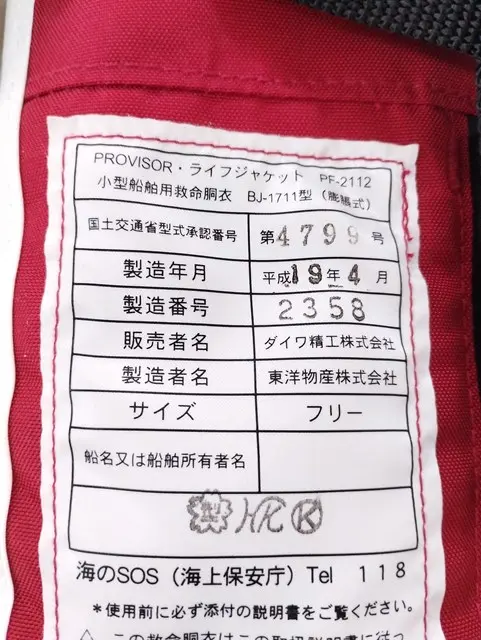 PROVISOR・ライフジャケット PF-2112
小型船舶用救命胴衣 BJ-1711型（膨脹式）
国土交通省型式承認番号 第4799号
製造年月 平成19年4月
製造番号 2358
販売者名 ダイワ精工株式会社
製造者名 東洋物産株式会社
サイズ フリー
船名又は船舶所有者名
HK K
海のSOS（海上保安庁）Tel 118
*使用前に必ず添付の説明書をご覧ください。
△ この救命胴衣はこの取扱説明書に従っ